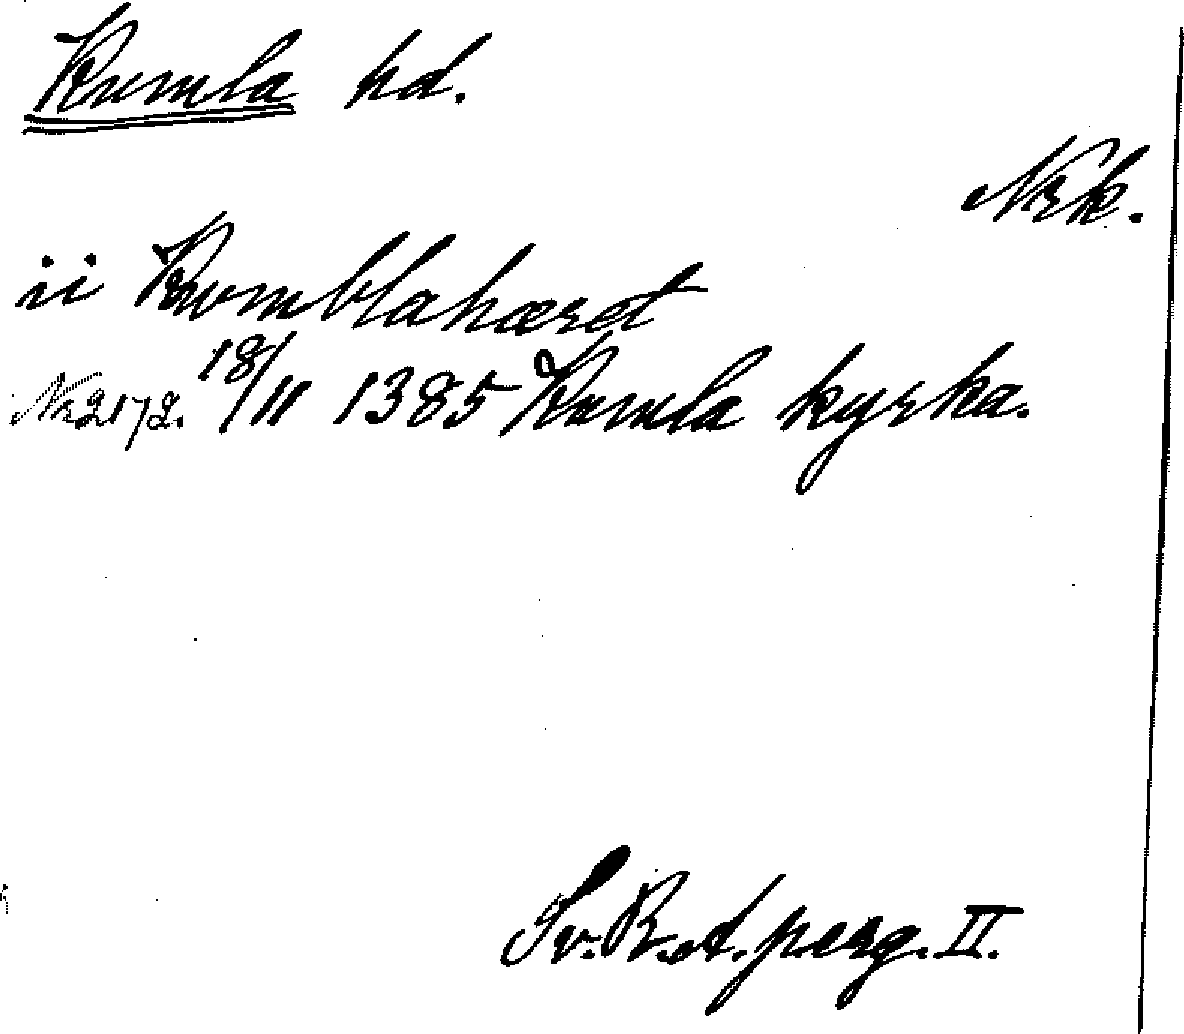 Kumla hd.
Nrk.
ii Kumblahæret
Nr 2172. 18/11 1385 Kumla kyrka.
Sv. R. A. perg. II.